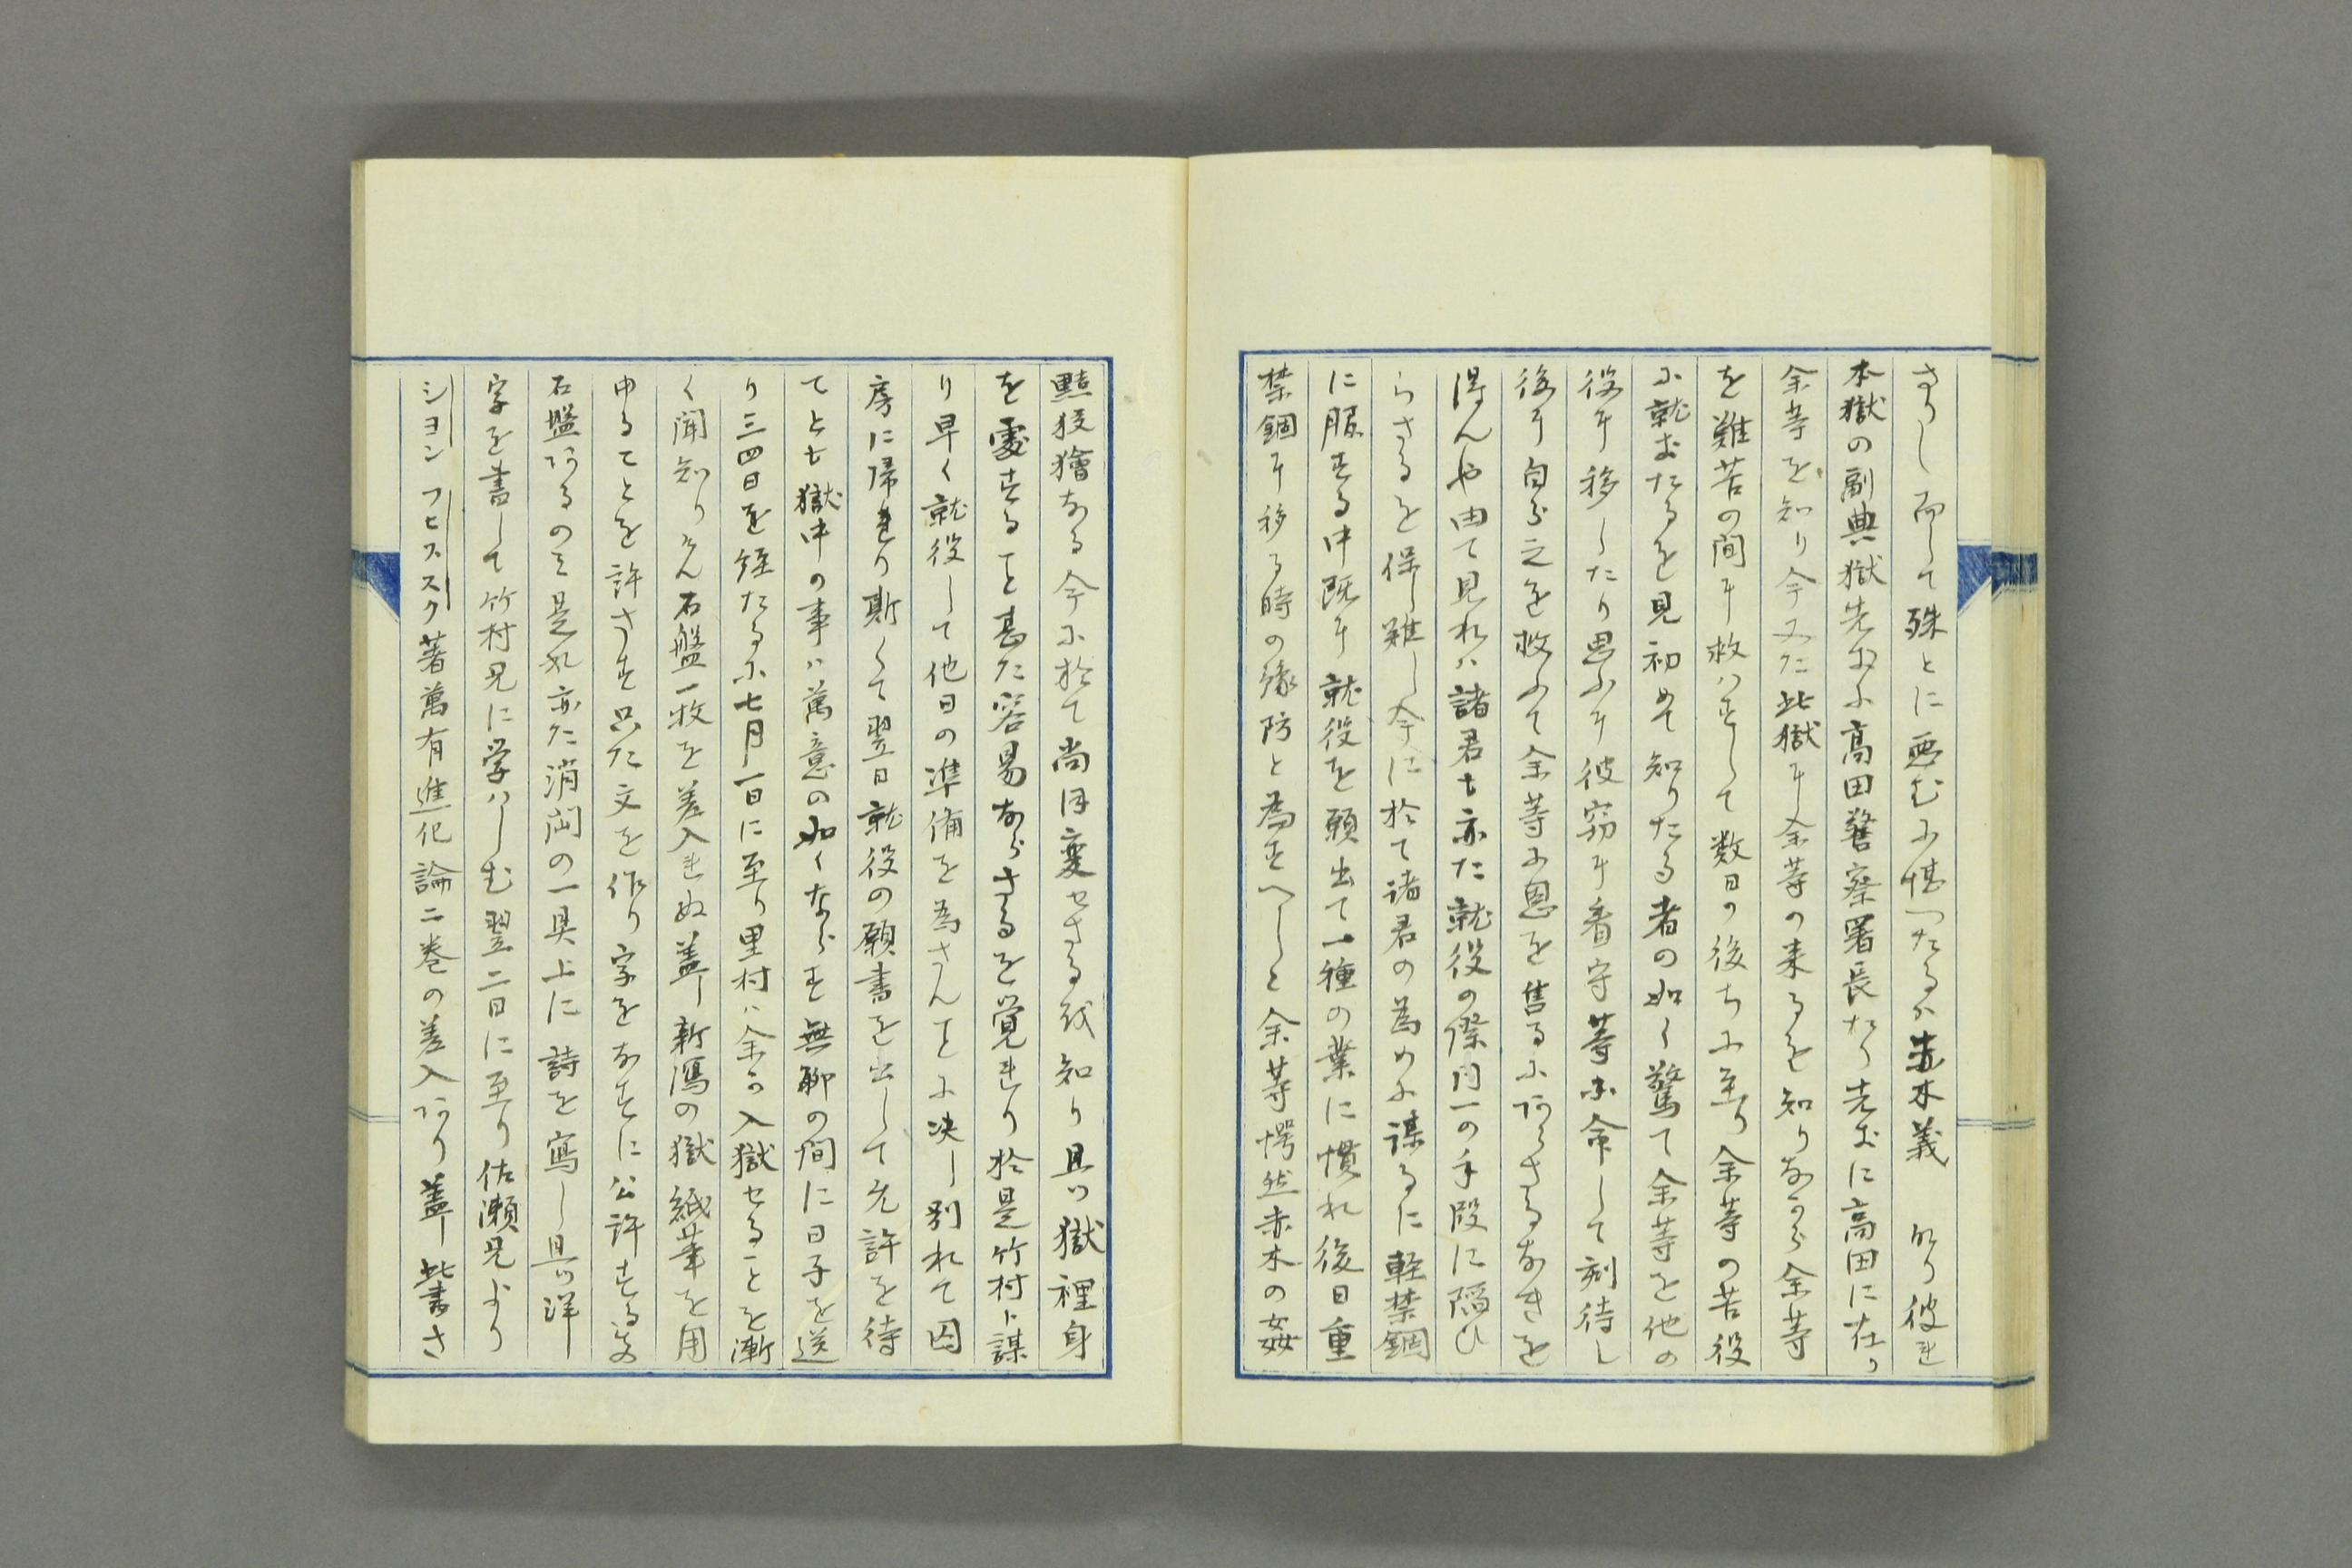 さりし而して殊とに悪むに堪へたるハ赤木義　なり彼れ
本獄の副典獄先きに高田警察署長たり先きに高田に在り
余等を知り今又た此獄に余等の来るを知りながら余等
を難苦の間に救ハずして数日の後ちに至り余等の苦役
に就きたるを見初めて知りたる者の如く驚て余等を他の
役に移したり思ふに彼窃に看守等に命して刻待し
後に自ら之を救ふて余等に恩を售るにあらさるなきを
得んや由て見れハ諸君も亦た就役の際同一の手段に陥ひ
らさるを保し難し今に於て諸君の為めに謀るに軽禁錮
に服する中既に就役を願出て一種の業に慣れ後日重
禁錮に移る時の縁防と為すへしと余等愕然赤木の姦
黠狡獪なる今に於て尚ほ変せさるを知り且つ獄裡身
を處するヿ甚た容易ならさるを覚れり於是竹村ト謀
り早く就役して他日の準備を為さんヿに决し別れて囚
房に帰れり斯くて翌日就役の願書を出して允許を待
てとも獄中の事ハ萬意の如くならす無聊の間に日子を送
り三四日を経たるに七月一日に至り里村ハ余の入獄せることを漸
く聞知りけん石盤一枚を差入れぬ蓋し新潟の獄紙筆を用
ゆるヿとを許さす只た文を作り字をなすに公許する者
石盤あるのミ是れ亦た消閑の一具上に詩を寫し且つ洋
字を書して竹村兄に学ハしむ翌二日に至り佐瀬兄より
シヨン フヒススク著萬有進化論二巻の差入あり蓋し此書さ